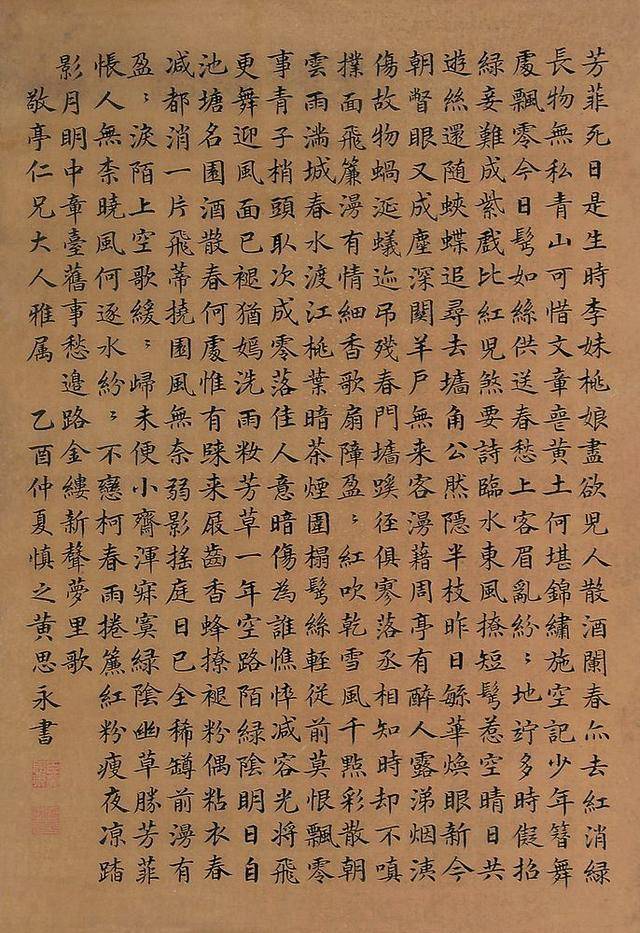 芳菲死日是生時李妹桃娘盡欲兒人散酒闌春亦去紅消綠
長物無私青山可惜文章喪黃土何堪錦繡施空記少年簪舞
處飄零今日髩如絲供送春愁上客眉亂紛〻地竚多時儗招
綠妾難成紫戲比紅兒煞要詩臨水東風撩短髩惹空晴日共
遊絲還随蛺蝶追尋去墻角公然隱半枝昨日緐華煥眼新今
朝瞥眼又成塵深関羊戶無来客漫藉周亭有醉人露涕烟洟
傷故物蝸涎蟻迹吊残春門墻蹊徑俱寥落丞相知時却不嗔
撲面飛簾漫有情細香歌扇障盈〻紅吹乾雪風千點彩散朝
雲雨滿城春水渡江桃葉暗茶煙圍榻髩絲輕従前莫恨飄零
事青子梢頭取次成零落佳人意暗傷為誰憔悴減容光將飛
更舞迎風面已褪猶嫣洗雨妝芳草一年空路陌綠陰明日自
池塘名園酒散春何處惟有歸来屐齒香蜂撩褪粉偶粘衣春
减都消一片飛蒂撓園風無奈弱影搖庭日已全稀罇前漫有
盈〻淚陌上空歌緩〻歸未便小齋渾寂寞綠陰幽草勝芳菲
悵人無柰曉風何逐水紛〻不戀柯春雨捲簾紅粉瘦夜凉踏
影月明中章臺舊事愁邊路金縷新聲夢里歌
敬亭仁兄大人雅属 乙酉仲夏慎之黃思永書